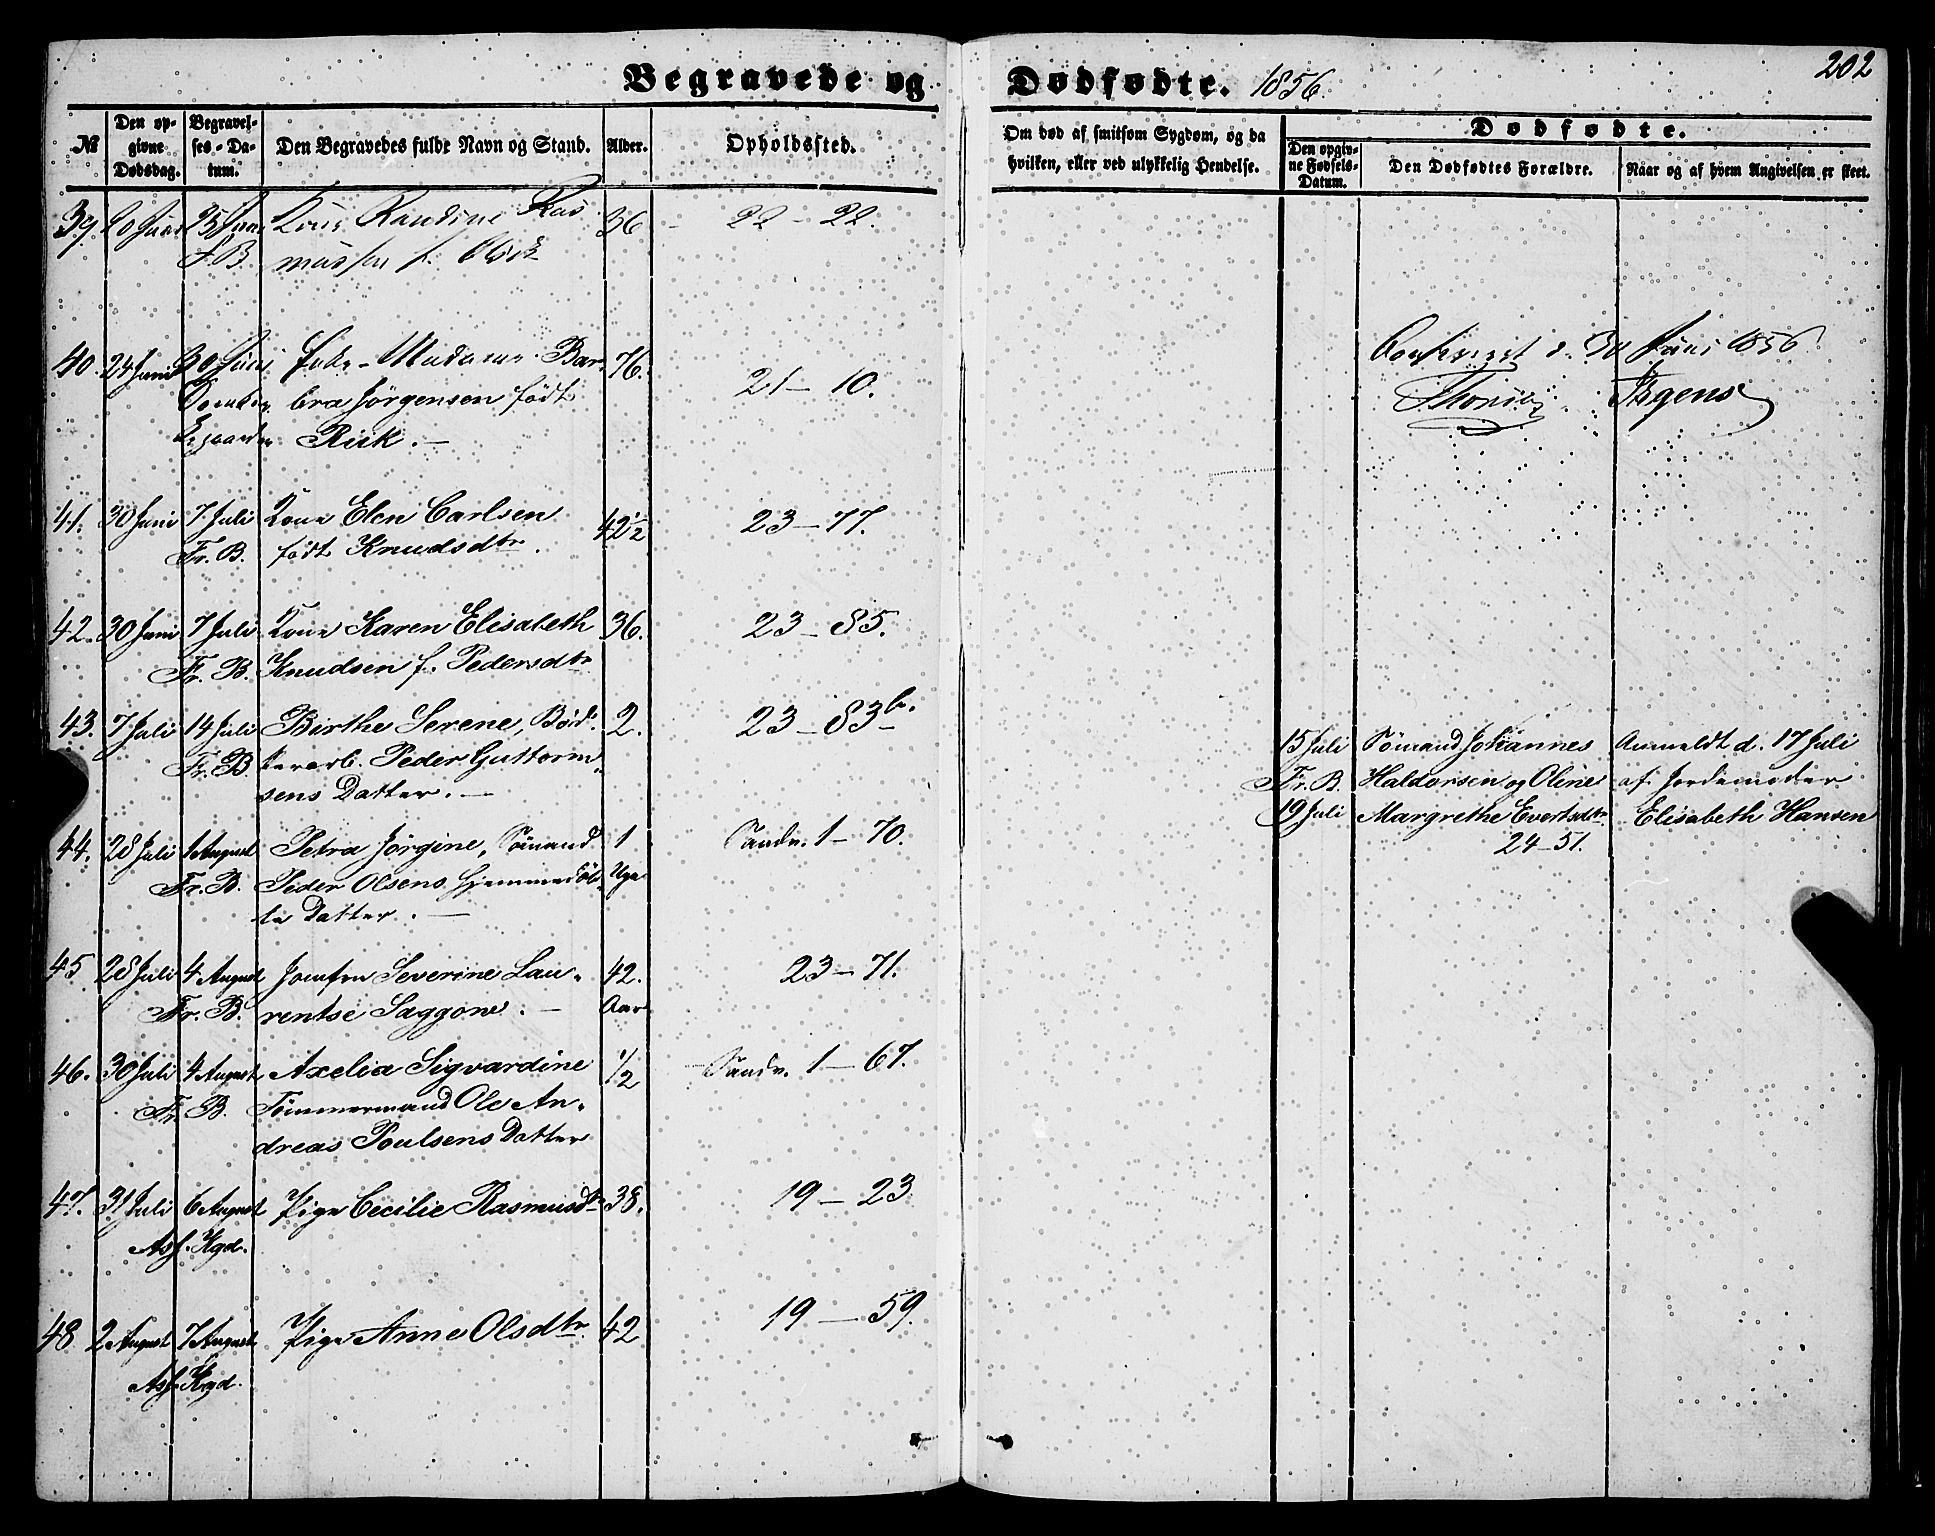 202
Begravede og Dødfødte. 1856.
№
Den opgivne Dødsdag.
Begravelses-Datum.
Den Begravedes fulde Navn og Stand.
Alder.
Opholdssted.
Om død af smitsom Sygdom, og da hvilken, eller ved ulykkelig Hendelse.
Dødfødte.
Den opgivne Fødsels-Datum.
Den Dødfødtes Forældre.
Naar og af hvem Angivelsen er skeet.
39. 20 Juni 25 Juni Kone Randine Ras- 36 22-22.
mussen f.
40. 24 Juni 30 Juni Enke-Madame Bar- 76. 21-10.
bra Jørgensen født
Riik.
30 Juni 1856
41. 30 Juni 7 Juli Kone Elen Carlsen 42½ 23-77.
Fr. B. født Knudsdtr.
42. 30 Juni 7 Juli Kone Karen Elisabeth 36. 23-85.
Fr. B. Knudsen f. Pedersdtr
43. 7 Juli 14 Juli Birthe Serene, Bød- 2. 23-83b.
Fr. B. kerarb. Peder Guttorm-
sens Datter.
15 Juli Sömand Johannes Anmeldt d. 17 Juli
Fr. B. Haldorsen og Oline af Jordemoder
19 Juli Margrethe Evertsdtr Elisabeth Hansen
24-51.
44. 28 Juli 1 August Petra Jørgine, Sömand 1 Sandv. 1-70.
Fr. B. Peder Olsens hjemmedöb- Uge
te Datter.
45 28 Juli 4 August Jomfru Severine Lau- 42. 23-71.
Fr. B. rentse Saggone. Aar
46. 30 Juli 4 August Axelia Sigvardine 1/2 Sandv. 1-67.
Fr. B. Tömmermand Ole An-
dreas Poulsens Datter
47. 31 Juli 6 August Pige Cecilie Rasmusdtr 38. 19-23.
Asf. Kgd.
48 2 August 7 August Pige Anne Olsdtr. 42 19-59.
Asf. Kgd.